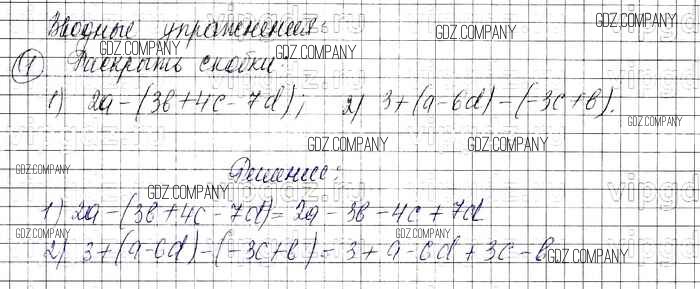 Вводные упражнения:
GDZ.COMPANY GDZ.COMPANY GDZ.COMPANY GDZ.COMPANY
① Раскрыть скобки:
1) 2a-(3b+4c-7d); 2) 3+(a-6d)-(-3c+b).
GDZ.COMPANY
GDZ.COMPANY GDZ.COMPANY
GDZ.COMPANY
Решение:
GDZ.COMPANY
1) 2a-(3b+4c-7d)=2a-3b-4c+7d
GDZ.COMPANY GDZ.COMPANY
2) 3+(a-6d)-(-3c+b)=3+a-6d+3c-b
GDZ.COMPANY